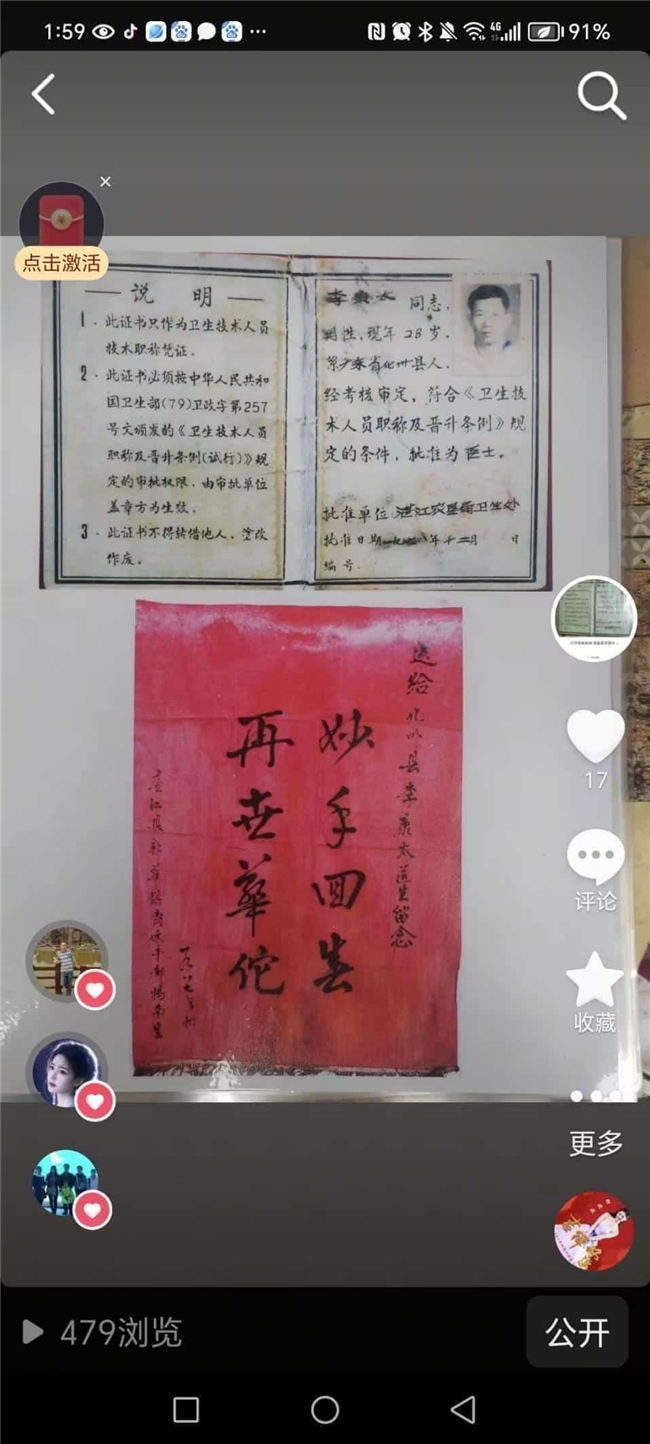 1:59
4G
91%
点击激活
说 明
1. 此证书只作为卫生技术人员
技术职称凭证.
2. 此证书必须按中华人民共和
国卫生部(79)卫政字第257
号文颁发的《卫生技术人员
职称及晋升条例(试行)》规
定的审批权限. 由审批单位
盖章方为生效.
3. 此证书不得转借他人, 塗改
作废。
同志,
性, 现年 28 岁.
系广东省化州县人.
经考核审定, 符合《卫生技
术人员职称及晋升条例》规
定的条件, 批准为 医士.
批准单位 湛江农垦局卫生处
批准日期 年十二月 日
编号.
送给化州县李泰太医生留念
妙手回春
再世華佗
17
评论
收藏
更多
479浏览
公开